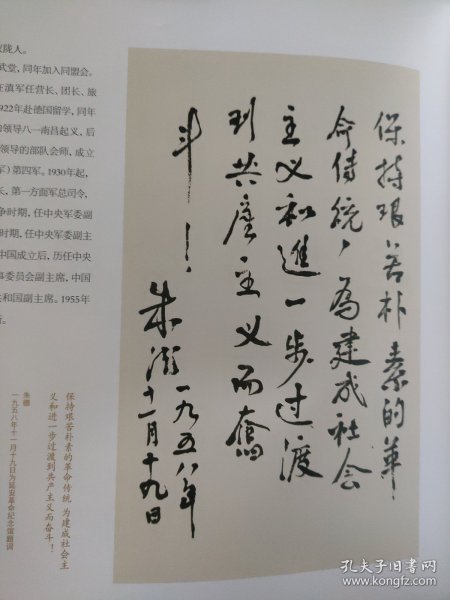 陇人。
武堂，同年加入同盟会。
在滇军任营长、团长、旅
922年赴德国留学，同年
领导八一南昌起义，后
领导的部队会师，成立
军）第四军。1930年起，
长，第一方面军总司令、
争时期，任中央军委副
时期，任中央军委副主
中国成立后，历任中央
事委员会副主席，中国
共和国副主席。1955年
保持艰苦朴素的革
命传统，為建成社会
主义和進一步过渡
到共產主义而奮
斗！
朱德 一九五八年
十一月十九日
保持艰苦朴素的革命传统 为建成社会主
义和进一步过渡到共产主义而奋斗！
朱德
一九五八年十一月十九日为延安革命纪念馆题词
孔夫子旧书网
www.kongfz.com